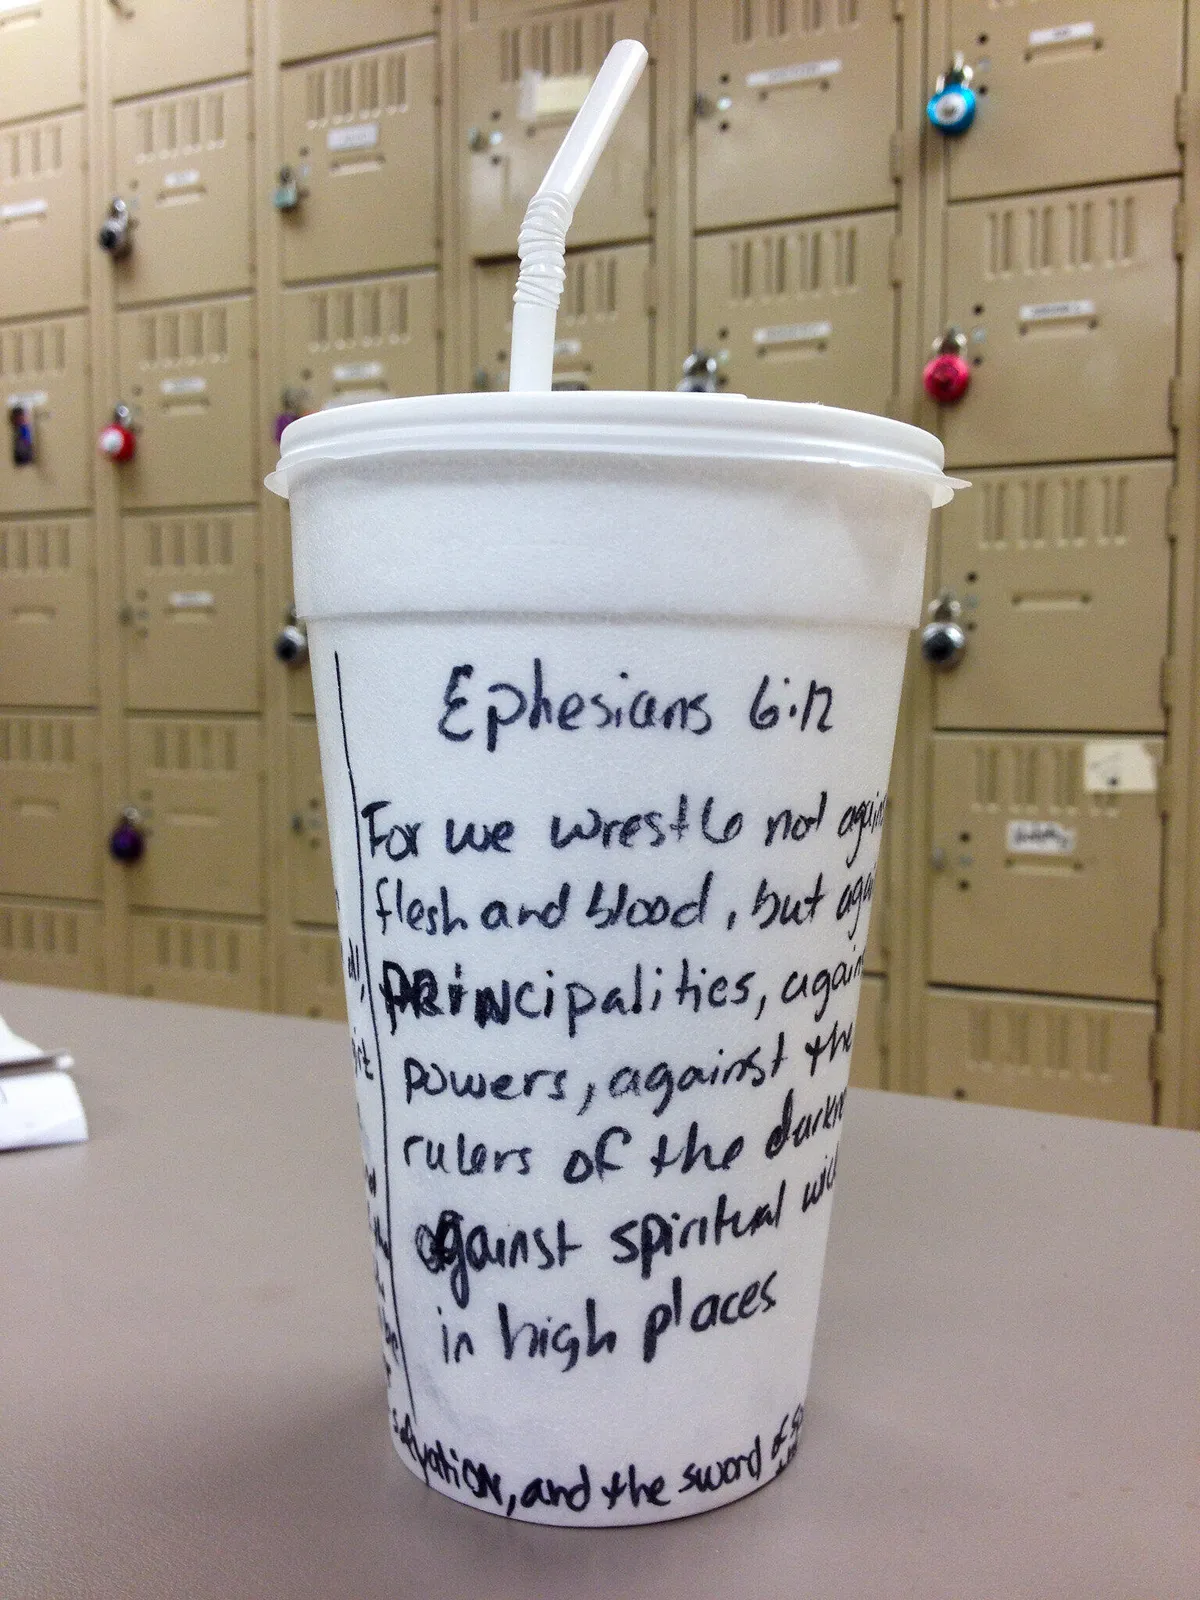 Ephesians 6:12
For we wrestle not again
flesh and blood, but aga
PRiNcipalities, again
powers, against the
rulers of the darkne
against spiritual wic
in high places
salvatioN, and the sword of